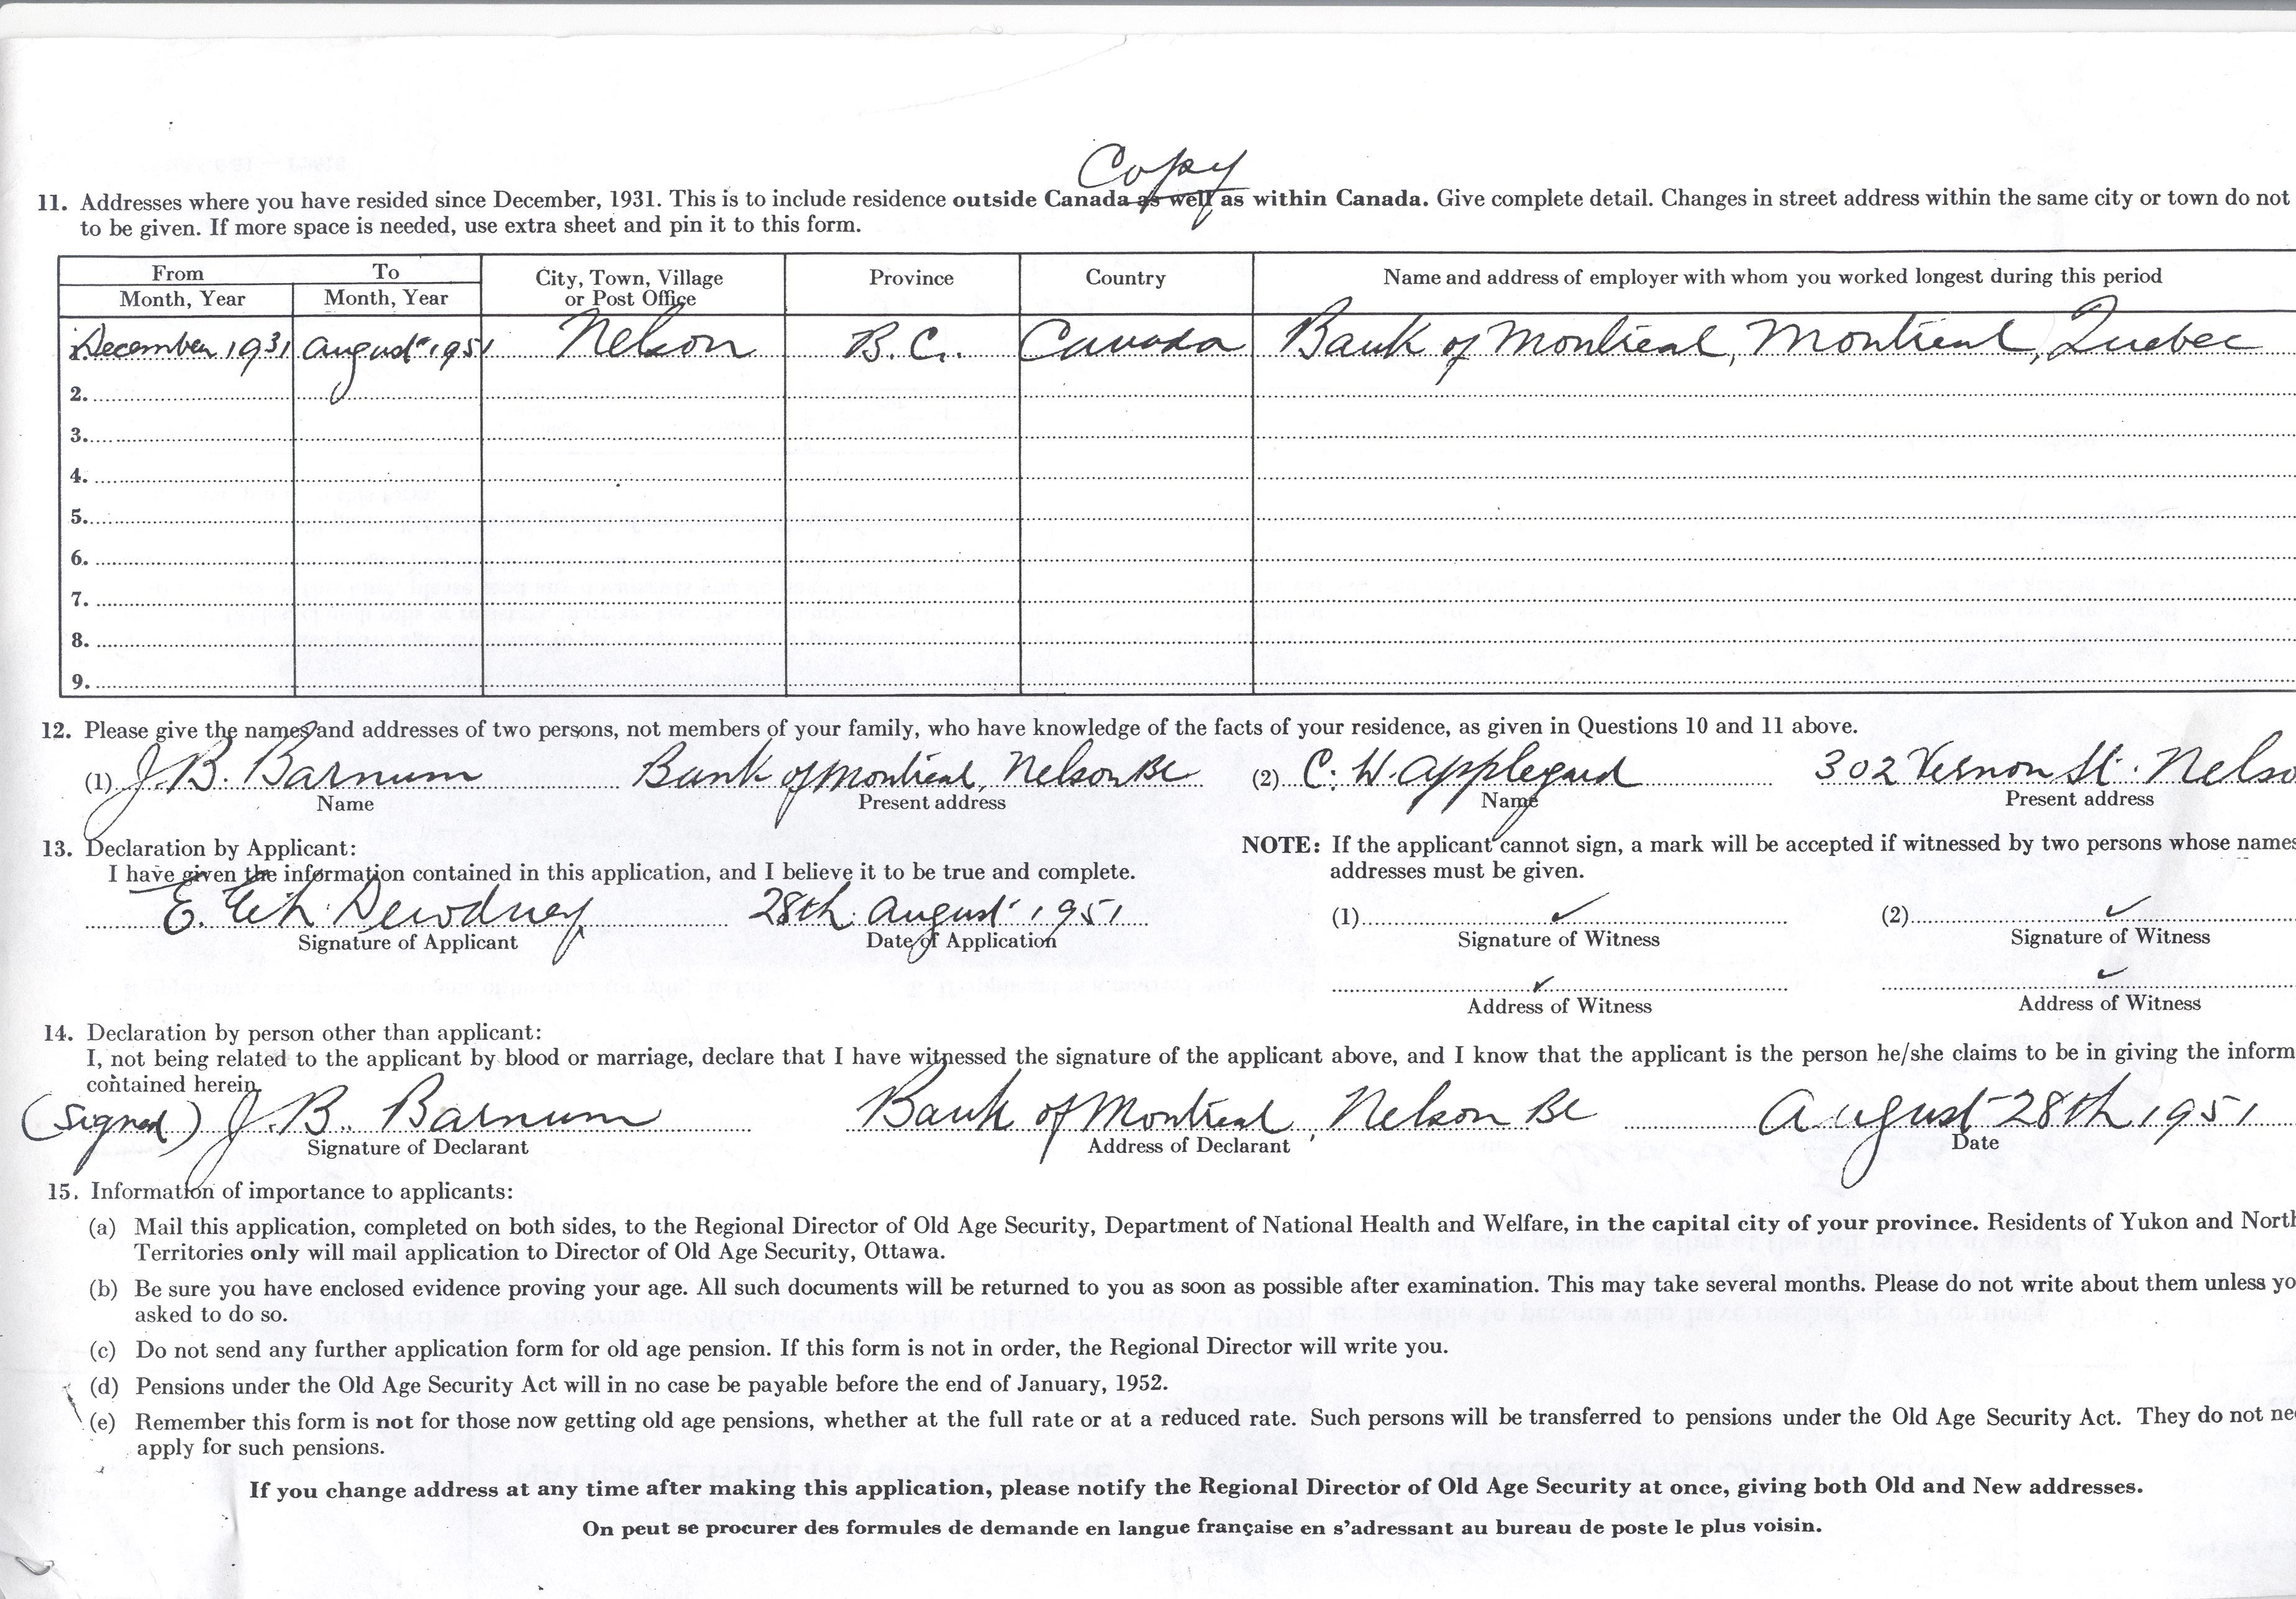 Copy
11. Addresses where you have resided since December, 1931. This is to include residence outside Canada as well as within Canada. Give complete detail. Changes in street address within the same city or town do not
to be given. If more space is needed, use extra sheet and pin it to this form.
From To City, Town, Village Province Country Name and address of employer with whom you worked longest during this period
Month, Year Month, Year or Post Office
December 1931 August 1951 Nelson B.C. Canada Bank of Montreal, Montreal, Quebec
2.
3.
4.
5.
6.
7.
8.
9.
12. Please give the names and addresses of two persons, not members of your family, who have knowledge of the facts of your residence, as given in Questions 10 and 11 above.
(1) J. B. Barnum Bank of Montreal, Nelson BC (2) C. W. Appleyard 302 Vernon St. Nelso
Name Present address Name Present address
13. Declaration by Applicant: NOTE: If the applicant cannot sign, a mark will be accepted if witnessed by two persons whose names
I have given the information contained in this application, and I believe it to be true and complete. addresses must be given.
E. Dewdney 28th August 1951 (1) ✓ (2) ✓
Signature of Applicant Date of Application Signature of Witness Signature of Witness
✓ ✓
Address of Witness Address of Witness
14. Declaration by person other than applicant:
I, not being related to the applicant by blood or marriage, declare that I have witnessed the signature of the applicant above, and I know that the applicant is the person he/she claims to be in giving the inform
contained herein.
(Signed) J. B. Barnum Bank of Montreal, Nelson BC August 28th, 1951
Signature of Declarant Address of Declarant Date
15. Information of importance to applicants:
(a) Mail this application, completed on both sides, to the Regional Director of Old Age Security, Department of National Health and Welfare, in the capital city of your province. Residents of Yukon and North
Territories only will mail application to Director of Old Age Security, Ottawa.
(b) Be sure you have enclosed evidence proving your age. All such documents will be returned to you as soon as possible after examination. This may take several months. Please do not write about them unless yo
asked to do so.
(c) Do not send any further application form for old age pension. If this form is not in order, the Regional Director will write you.
(d) Pensions under the Old Age Security Act will in no case be payable before the end of January, 1952.
(e) Remember this form is not for those now getting old age pensions, whether at the full rate or at a reduced rate. Such persons will be transferred to pensions under the Old Age Security Act. They do not ne
apply for such pensions.
If you change address at any time after making this application, please notify the Regional Director of Old Age Security at once, giving both Old and New addresses.
On peut se procurer des formules de demande en langue française en s'adressant au bureau de poste le plus voisin.